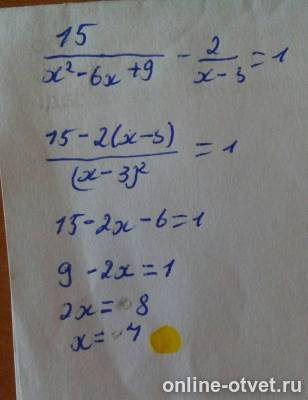 15/(x²-6x+9) - 2/(x-3) = 1
(15-2(x-3))/(x-3)² = 1
15-2x-6=1
9-2x=1
2x= 8
x= 4
online-otvet.ru